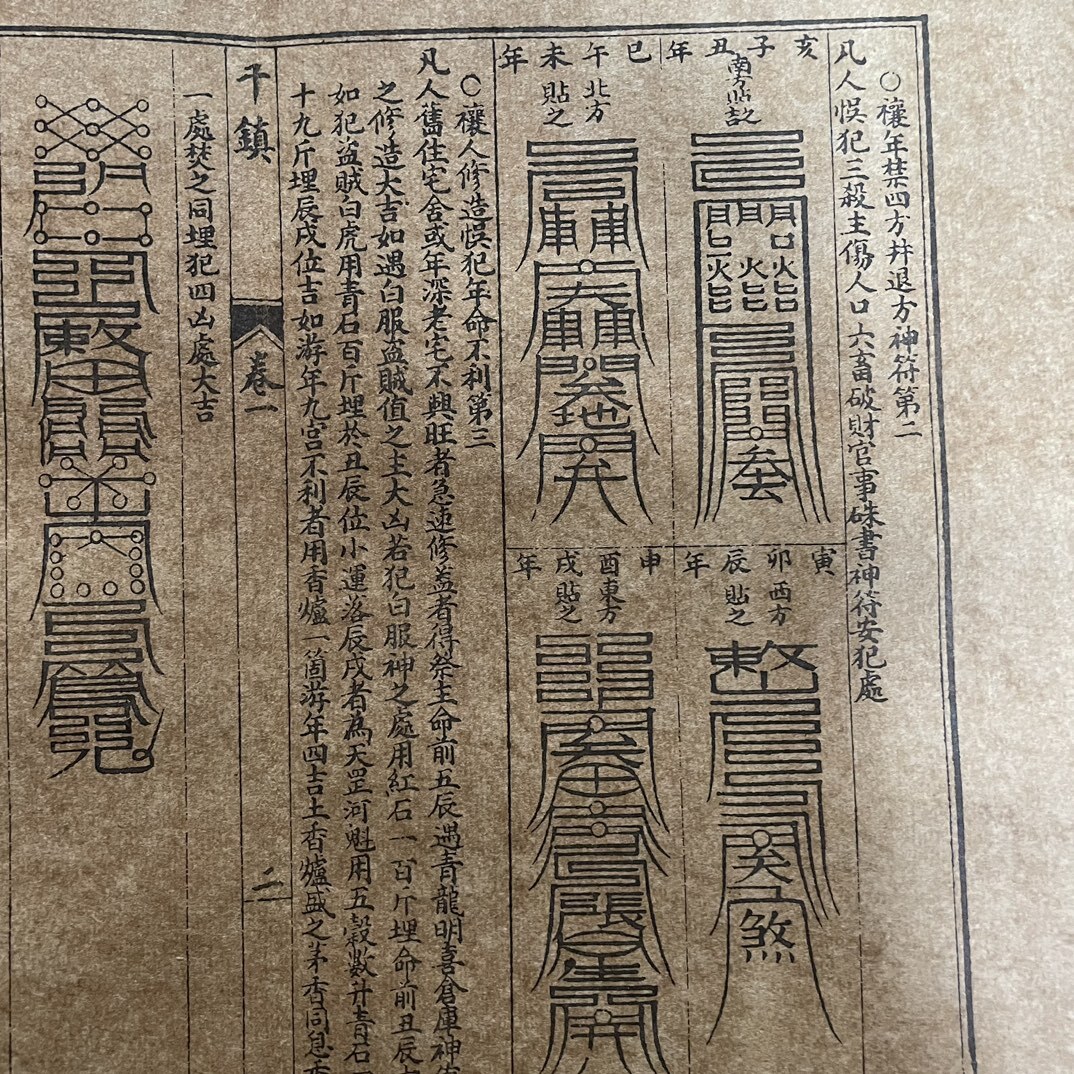 ○禳年禁四方并退方神符第二
凡人悞犯三殺主傷人口六畜破財官事硃書神符安犯處
亥子丑年
南方貼之
巳午未年
北方貼之
寅卯辰年
西方貼之
煞
申酉戌年
東方貼之
○禳人修造悞犯年命不利第三
凡人舊住宅舍或年深老宅不興旺者急速修蓋者得祭主命前五辰遇青龍明喜倉庫神
之修造大吉如遇白服盜賊值之主大凶若犯白服神之處用紅石一百斤埋命前丑辰
如犯盜賊白虎用青石百斤埋於丑辰位小運落辰戌者為天罡河魁用五穀數升青石
十九斤埋辰戌位吉如游年九宮不利者用香爐一箇游年四吉土香爐盛之茅香同
千鎮
卷一
二
一處焚之同埋犯四凶處大吉